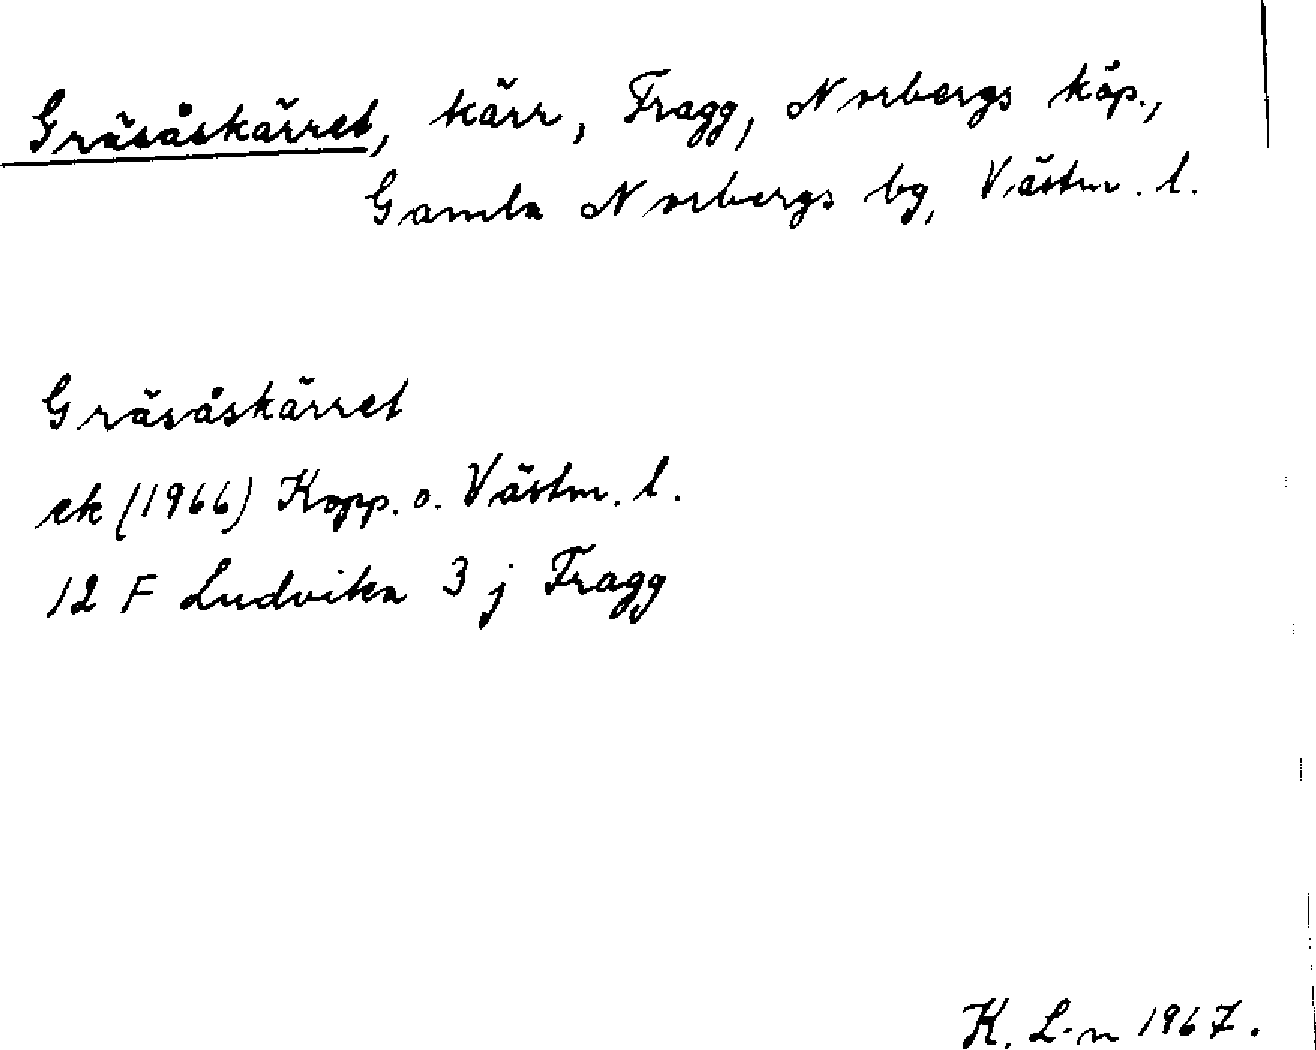 Gräsåskärret, kärr, Fragg, Norbergs köp.,
Gamla Norbergs bg, Västm. l.
Gräsåskärret
ek (1966) Kopp. o. Västm. l.
12 F Ludvika 3 j Fragg
K. L-n 1967.